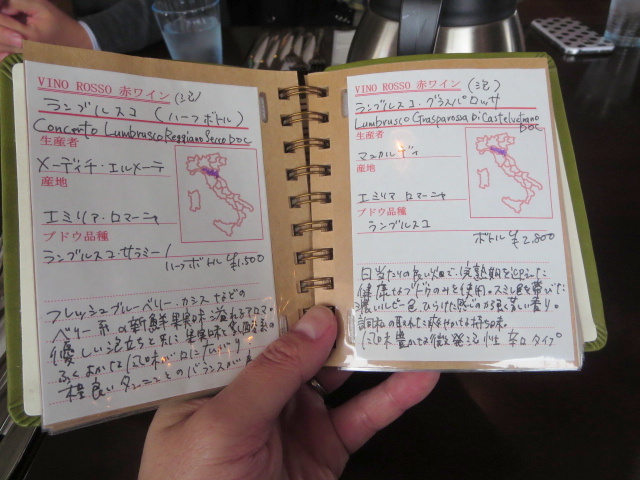 VINO ROSSO 赤ワイン (泡)
ランブルスコ (ハーフボトル)
Concerto Lumbrusco Reggiano Secco DOC
生産者
メーディチ・エルメーテ
産地
エミリア・ロマーニャ
ブドウ品種
ランブルスコ サラミーノ
ハーフボトル ¥1,500
フレッシュブルーベリー・カシスなどの
ベリー系の新鮮果実味溢れるアロマ。
優しい泡立ちと共に果実味・乳酸系の
ふくよかな風味が口に広がり
程良いタンニンとのバランスがいい
VINO ROSSO 赤ワイン (泡)
ランブルスコ・グラスパロッサ
Lumbrusco Grasparossa Di Castelvetrano
DOC
生産者
マッカルディ
産地
エミリア ロマーニャ
ブドウ品種
ランブルスコ
ボトル ¥2,800
日当たりの良い畑で、完熟期を迎えた
健康なブドウのみを使用。スミレ色を帯びた
濃いルビー色。
調和の取れた酸味
風味豊かな微発泡性 辛口タイプ。